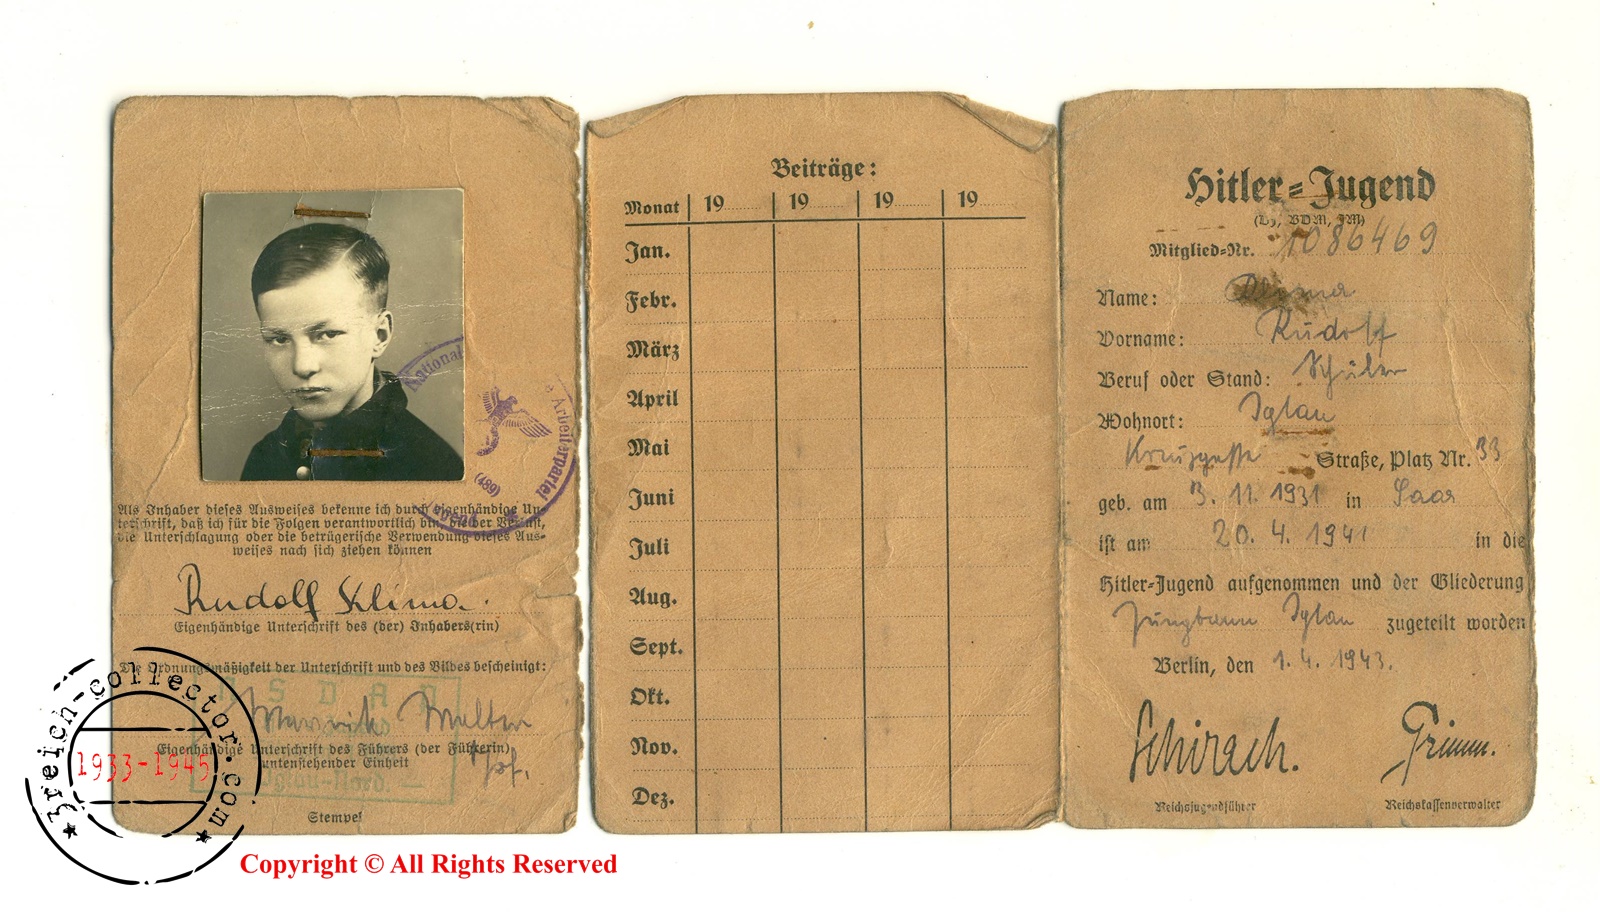 National
e Arbeiterpartei
(489)
Jugend
Als Inhaber dieses Ausweises bekenne ich durch eigenhändige Un-
terschrift, daß ich für die Folgen verantwortlich bin, die der Verlust,
die Unterschlagung oder die betrügerische Verwendung dieses Aus-
weises nach sich ziehen können
Rudolf Klima.
Eigenhändige Unterschrift des (der) Inhabers(rin)
Die Ordnungsmäßigkeit der Unterschrift und des Bildes bescheinigt:
NSDAP
Walter
Eigenhändige Unterschrift des Führers (der Führerin)
untenstehender Einheit
Iglau-Nord.
Stempel
3reich-collector.com
1933-1945
Copyright © All Rights Reserved
Beiträge:
Monat 19 19 19 19
Jan.
Febr.
März
April
Mai
Juni
Juli
Aug.
Sept.
Okt.
Nov.
Dez.
Hitler-Jugend
(DJ, BDM, JM)
Mitglied-Nr. 1086469
Name:
Vorname: Rudolf
Beruf oder Stand: Schüler
Wohnort: Iglau
Kreuzgasse Straße, Platz Nr. 33
geb. am 3. 11. 1931 in Saar
ist am 20. 4. 1941 in die
Hitler-Jugend aufgenommen und der Gliederung
Jungbann Iglau zugeteilt worden
Berlin, den 1. 4. 1943.
Schirach. Grimm.
Reichsjugendführer Reichskassenverwalter